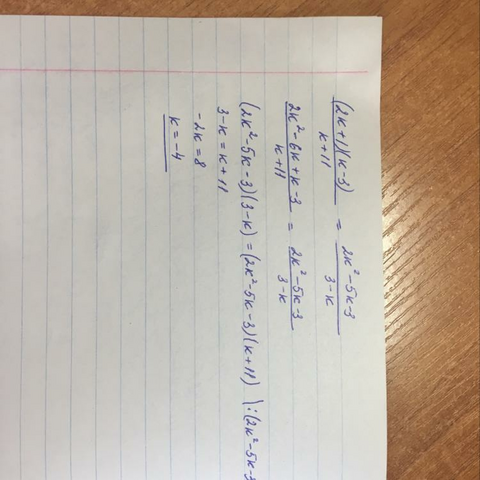 (2k+1)(k-3)/k+11 = 2k²-5k-3/3-k
2k²-6k+k-3/k+11 = 2k²-5k-3/3-k
(2k²-5k-3)(3-k) = (2k²-5k-3)(k+11) \:(2k²-5k-3
3-k = k+11
-2k = 8
k = -4